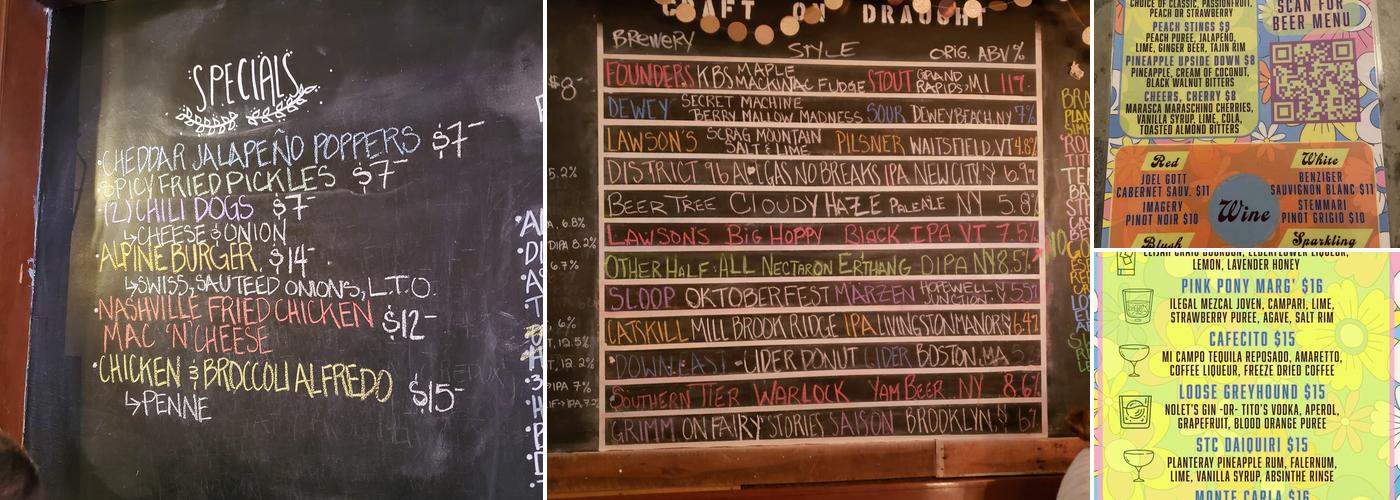 SPECIALS
•CHEDDAR JALAPEÑO POPPERS $7-
•SPICY FRIED PICKLES $7-
•(2) CHILI DOGS $7-
↳CHEESE & ONION
•ALPINE BURGER $14-
↳SWISS, SAUTEED ONIONS, L.T.O.
•NASHVILLE FRIED CHICKEN $12-
MAC 'N' CHEESE
•CHICKEN & BROCCOLI ALFREDO $15-
↳PENNE
CRAFT ON DRAUGHT
BREWERY STYLE ORIG. ABV%
FOUNDERS KBS MAPLE MACKINAC FUDGE STOUT GRAND RAPIDS, MI 11%
DEWEY SECRET MACHINE BERRY MALLOW MADNESS SOUR DEWEY BEACH, NY 7%
LAWSON'S SCRAG MOUNTAIN SALT & LIME PILSNER WAITSFIELD, VT 4.8%
DISTRICT 96 ALL GAS NO BREAKS IPA NEW CITY, NY 6.9%
BEER TREE CLOUDY HAZE PALE ALE NY 5.8%
LAWSON'S BIG HOPPY BLACK IPA VT 7.5%
OTHER HALF • ALL NECTARON ERTHANG DIPA NY 8.5%
SLOOP OKTOBERFEST MARZEN HOPEWELL JUNCTION, NY 5.5%
CATSKILL MILL BROOK RIDGE IPA LIVINGSTON MANOR, NY 6.4%
DOWNEAST - CIDER DONUT CIDER BOSTON, MA
SOUTHERN TIER WARLOCK YAM BEER NY 8.6%
GRIMM ON FAIRY STORIES SAISON BROOKLYN, NY 6%
$8-
5.2%
6.8%
DIPA 8.2%
6.7%
6%
12.5%
12.2%
IPA 7%
CHOICE OF CLASSIC, PASSIONFRUIT,
PEACH OR STRAWBERRY
PEACH STINGS $9
PEACH PUREE, JALAPENO,
LIME, GINGER BEER, TAJIN RIM
PINEAPPLE UPSIDE DOWN $8
PINEAPPLE, CREAM OF COCONUT,
BLACK WALNUT BITTERS
CHEERS, CHERRY $8
MARASCA MARASCHINO CHERRIES,
VANILLA SYRUP, LIME, COLA,
TOASTED ALMOND BITTERS
SCAN FOR
BEER MENU
Red
JOEL GOTT
CABERNET SAUV. $11
IMAGERY
PINOT NOIR $10
Blush
Wine
White
BENZIGER
SAUVIGNON BLANC $11
STEMMARI
PINOT GRIGIO $10
Sparkling
ELIJAH CRAIG BOURBON, ELDERFLOWER LIQUEUR,
LEMON, LAVENDER HONEY
PINK PONY MARG' $16
ILEGAL MEZCAL JOVEN, CAMPARI, LIME,
STRAWBERRY PUREE, AGAVE, SALT RIM
CAFECITO $15
MI CAMPO TEQUILA REPOSADO, AMARETTO,
COFFEE LIQUEUR, FREEZE DRIED COFFEE
LOOSE GREYHOUND $15
NOLET'S GIN -OR- TITO'S VODKA, APEROL,
GRAPEFRUIT, BLOOD ORANGE PUREE
STC DAIQUIRI $15
PLANTERAY PINEAPPLE RUM, FALERNUM,
LIME, VANILLA SYRUP, ABSINTHE RINSE
MONTE CARLA $16